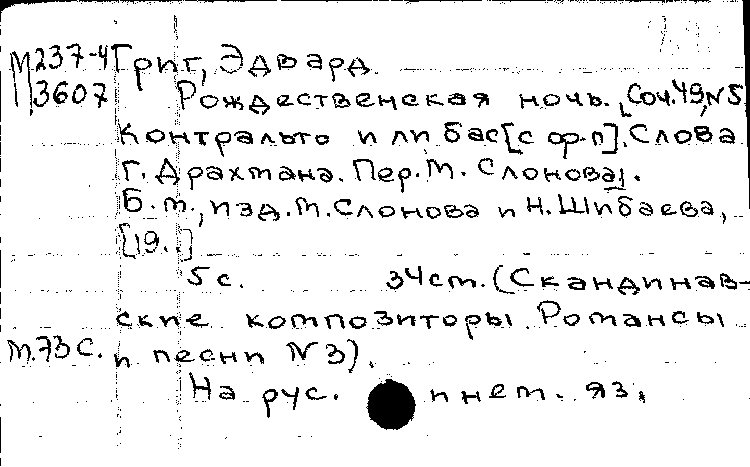 М237-4 Григ, Эдвард
3607 Рождественская ночь. [Соч. 49, N 5
Контральто или бас [с ф-п]. Слова
Г. Драхмана. Пер. М. Слонова].
Б.м., изд. М. Слонова и Н. Шибаева,
[19..]
5 с. 34 ст. (Скандинав-
ские композиторы. Романсы
М.73 С. и песни N 3).
На рус. и нем. яз.